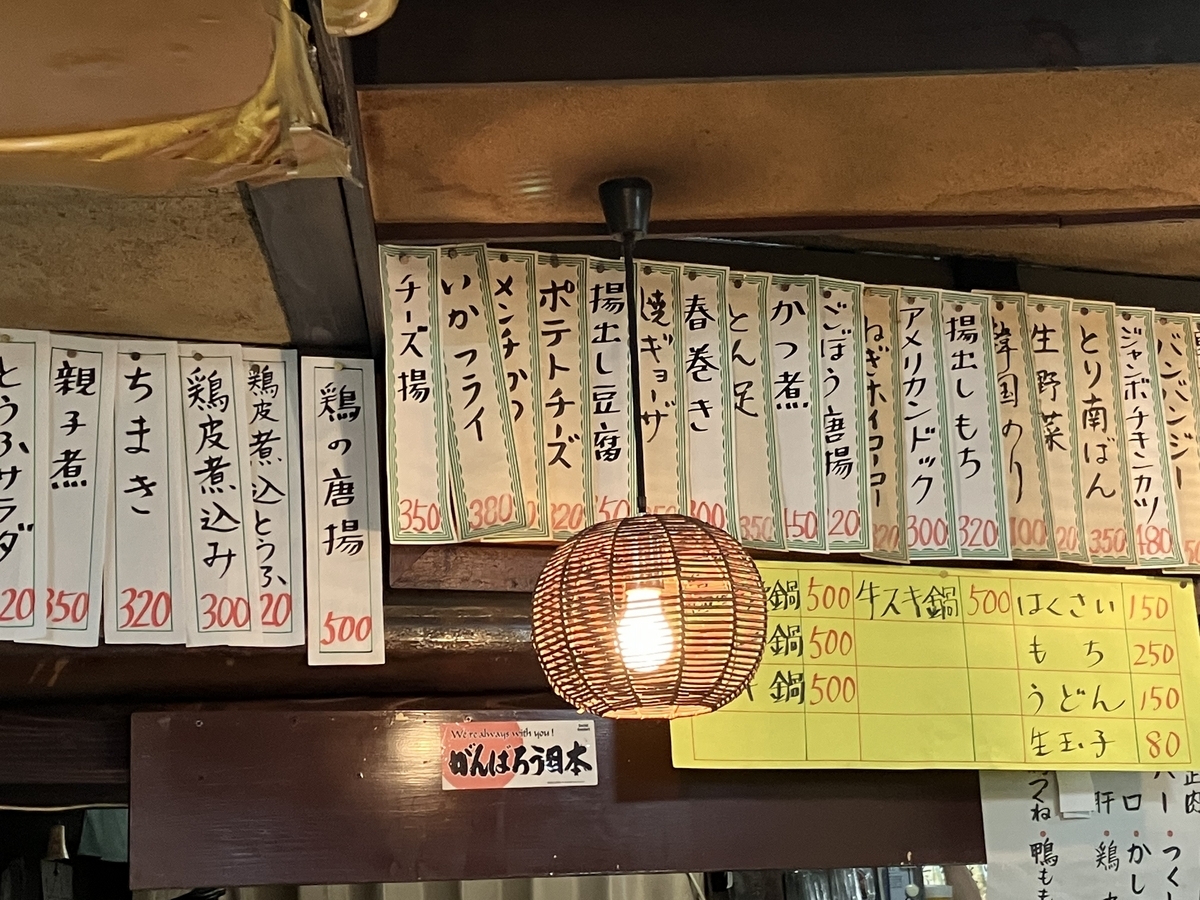 とうふサラダ 20
親子煮 350
ちまき 320
鶏皮煮込み 300
鶏皮煮込とうふ 20
鶏の唐揚 500
チーズ揚 350
いかフライ 380
メンチかつ
ポテトチーズ 320
揚出し豆腐 50
焼ギョーザ
春巻き 300
とん足 350
かつ煮 450
ごぼう唐揚 20
ねぎホイコーロー 320
アメリカンドック 300
揚出しもち 320
韓国のり 100
生野菜 20
とり南ばん 350
ジャンボチキンカツ 480
バンバンジー
鍋 500 牛スキ鍋 500 はくさい 150
鍋 500 もち 250
キ鍋 500 うどん 150
生玉子 80
We're always with you!
がんばろう日本
正肉
つくね・鴨もも
肝・鶏
ロ・かし
バー・つく